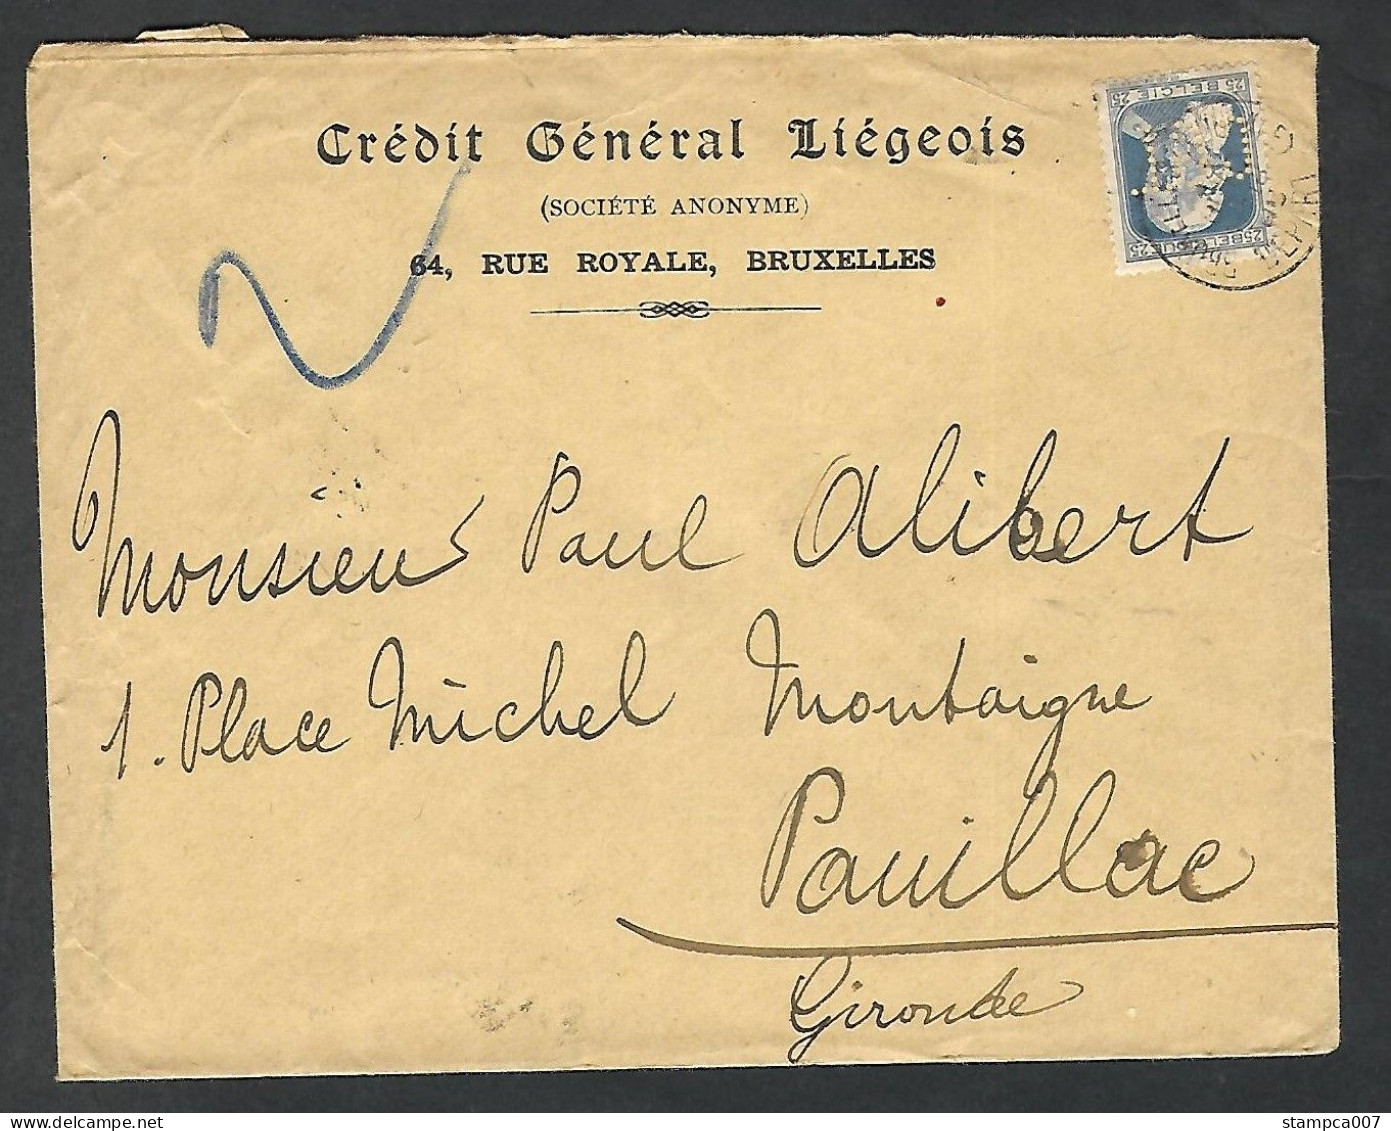 Crédit Général Liégeois
(SOCIÉTÉ ANONYME)
64, RUE ROYALE, BRUXELLES
25 BELGIE 25
25 BELGIQUE 25
Monsieur Paul Alibert
1. Place Michel Montaigne
Pauillac
Gironde
stampca007